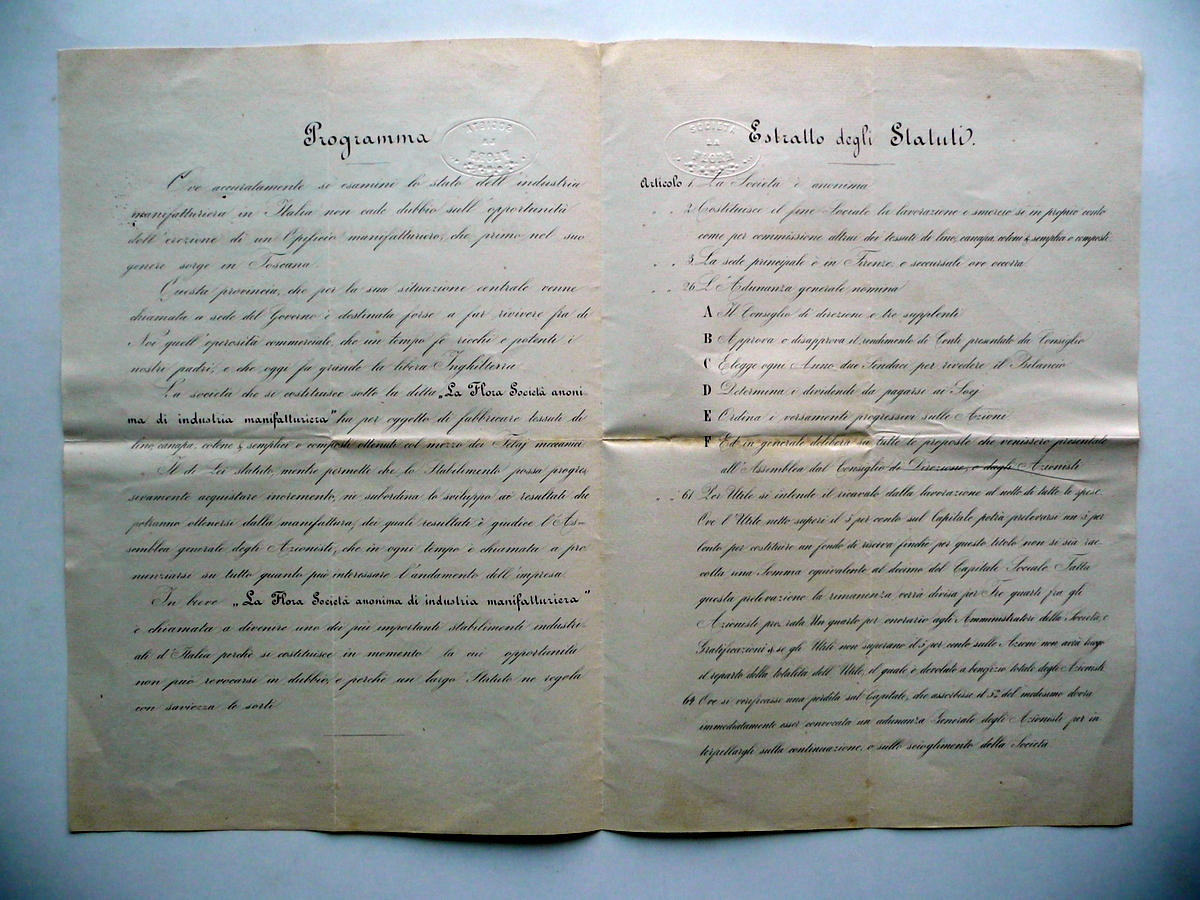 Programma
Ove accuratamente si esamini lo stato dell'industria
manifatturiera in Italia non cade dubbio sull'opportunità
dell'erezione di un Opificio manifatturiero, che primo nel suo
genere sorge in Toscana
Questa provincia, che per la sua situazione centrale venne
chiamata a sede del Governo è destinata forse a far rivivere fra di
Noi quell'operosità commerciale, che un tempo fè ricchi e potenti i
nostri padri, e che oggi fa grande la libera Inghilterra
La società che si costituisce sotto la ditta „La Flora Società anoni
ma di industria manifatturiera" ha per oggetto di fabbricare tessuti di
lino, canapa, cotone & semplici e composti ottenuti col mezzo dei Telaj meccanici
Il di Lei statuto, mentre permette che lo Stabilimento possa progres
sivamente acquistare incremento, ne subordina lo sviluppo ai resultati che
potranno ottenersi dalla manifattura, dei quali resultati è giudice l'As-
semblea generale degli Azionisti, che in ogni tempo è chiamata a pro
nunziarsi su tutto quanto può interessare l'andamento dell'impresa
In breve „La Flora Società anonima di industria manifatturiera"
è chiamata a divenire uno dei più importanti stabilimenti industri-
ali d'Italia perchè si costituisce in momento la cui opportunità
non può revocarsi in dubbio, e perchè un largo Statuto ne regola
con saviezza le sorti
SOCIETÀ
LA
FLORA
Estratto degli Statuti.
Articolo 1. La Società è anonima
" " 2. Costituisce il fine Sociale la lavorazione e smercio sì in proprio conto
come per commissione altrui dei tessuti di lino, canapa, cotone & semplici e composti
" " 3. La sede principale è in Firenze, e succursali ove occorra
" " 26. L'Adunanza generale nomina
A Il Consiglio di direzione e tre supplenti
B Approva o disapprova il rendimento di Conti presentati da Consiglio
C Elegge ogni Anno due Sindaci per rivedere il Bilancio
D Determina i dividendi da pagarsi ai Socj
E Ordina i versamenti progressivi sulle Azioni
F Ed in generale delibera su tutte le proposte che venissero presentate
all'Assemblea dal Consiglio di Direzione, o dagli Azionisti
" " 61. Per Utile si intende il ricavato dalla lavorazione al netto di tutte le spese.
Ove l'Utile netto superi il 5 per cento sul Capitale potrà prelevarsi un 5 per
Cento per costituire un fondo di riserva finchè per questo titolo non si sia rac-
colta una Somma equivalente al decimo del Capitale Sociale Fatta
questa prelevazione la rimanenza verrà divisa per Tre quarti fra gli
Azionisti pro rata Un quarto per onorario agli Amministratori della Società, e
Gratificazioni & se gli Utili non superano il 5 per cento sulle Azioni non avrà luogo
il reparto della totalità dell'Utile, il quale è devoluto a benefizio totale degli Azionisti
64. Ove si verificasse una perdita sul Capitale, che assorbisse il del medesimo dovrà
immediatamente esser convocata un adunanza Generale degli Azionisti per in
terpellargli sulla continuazione, o sullo scioglimento della Società